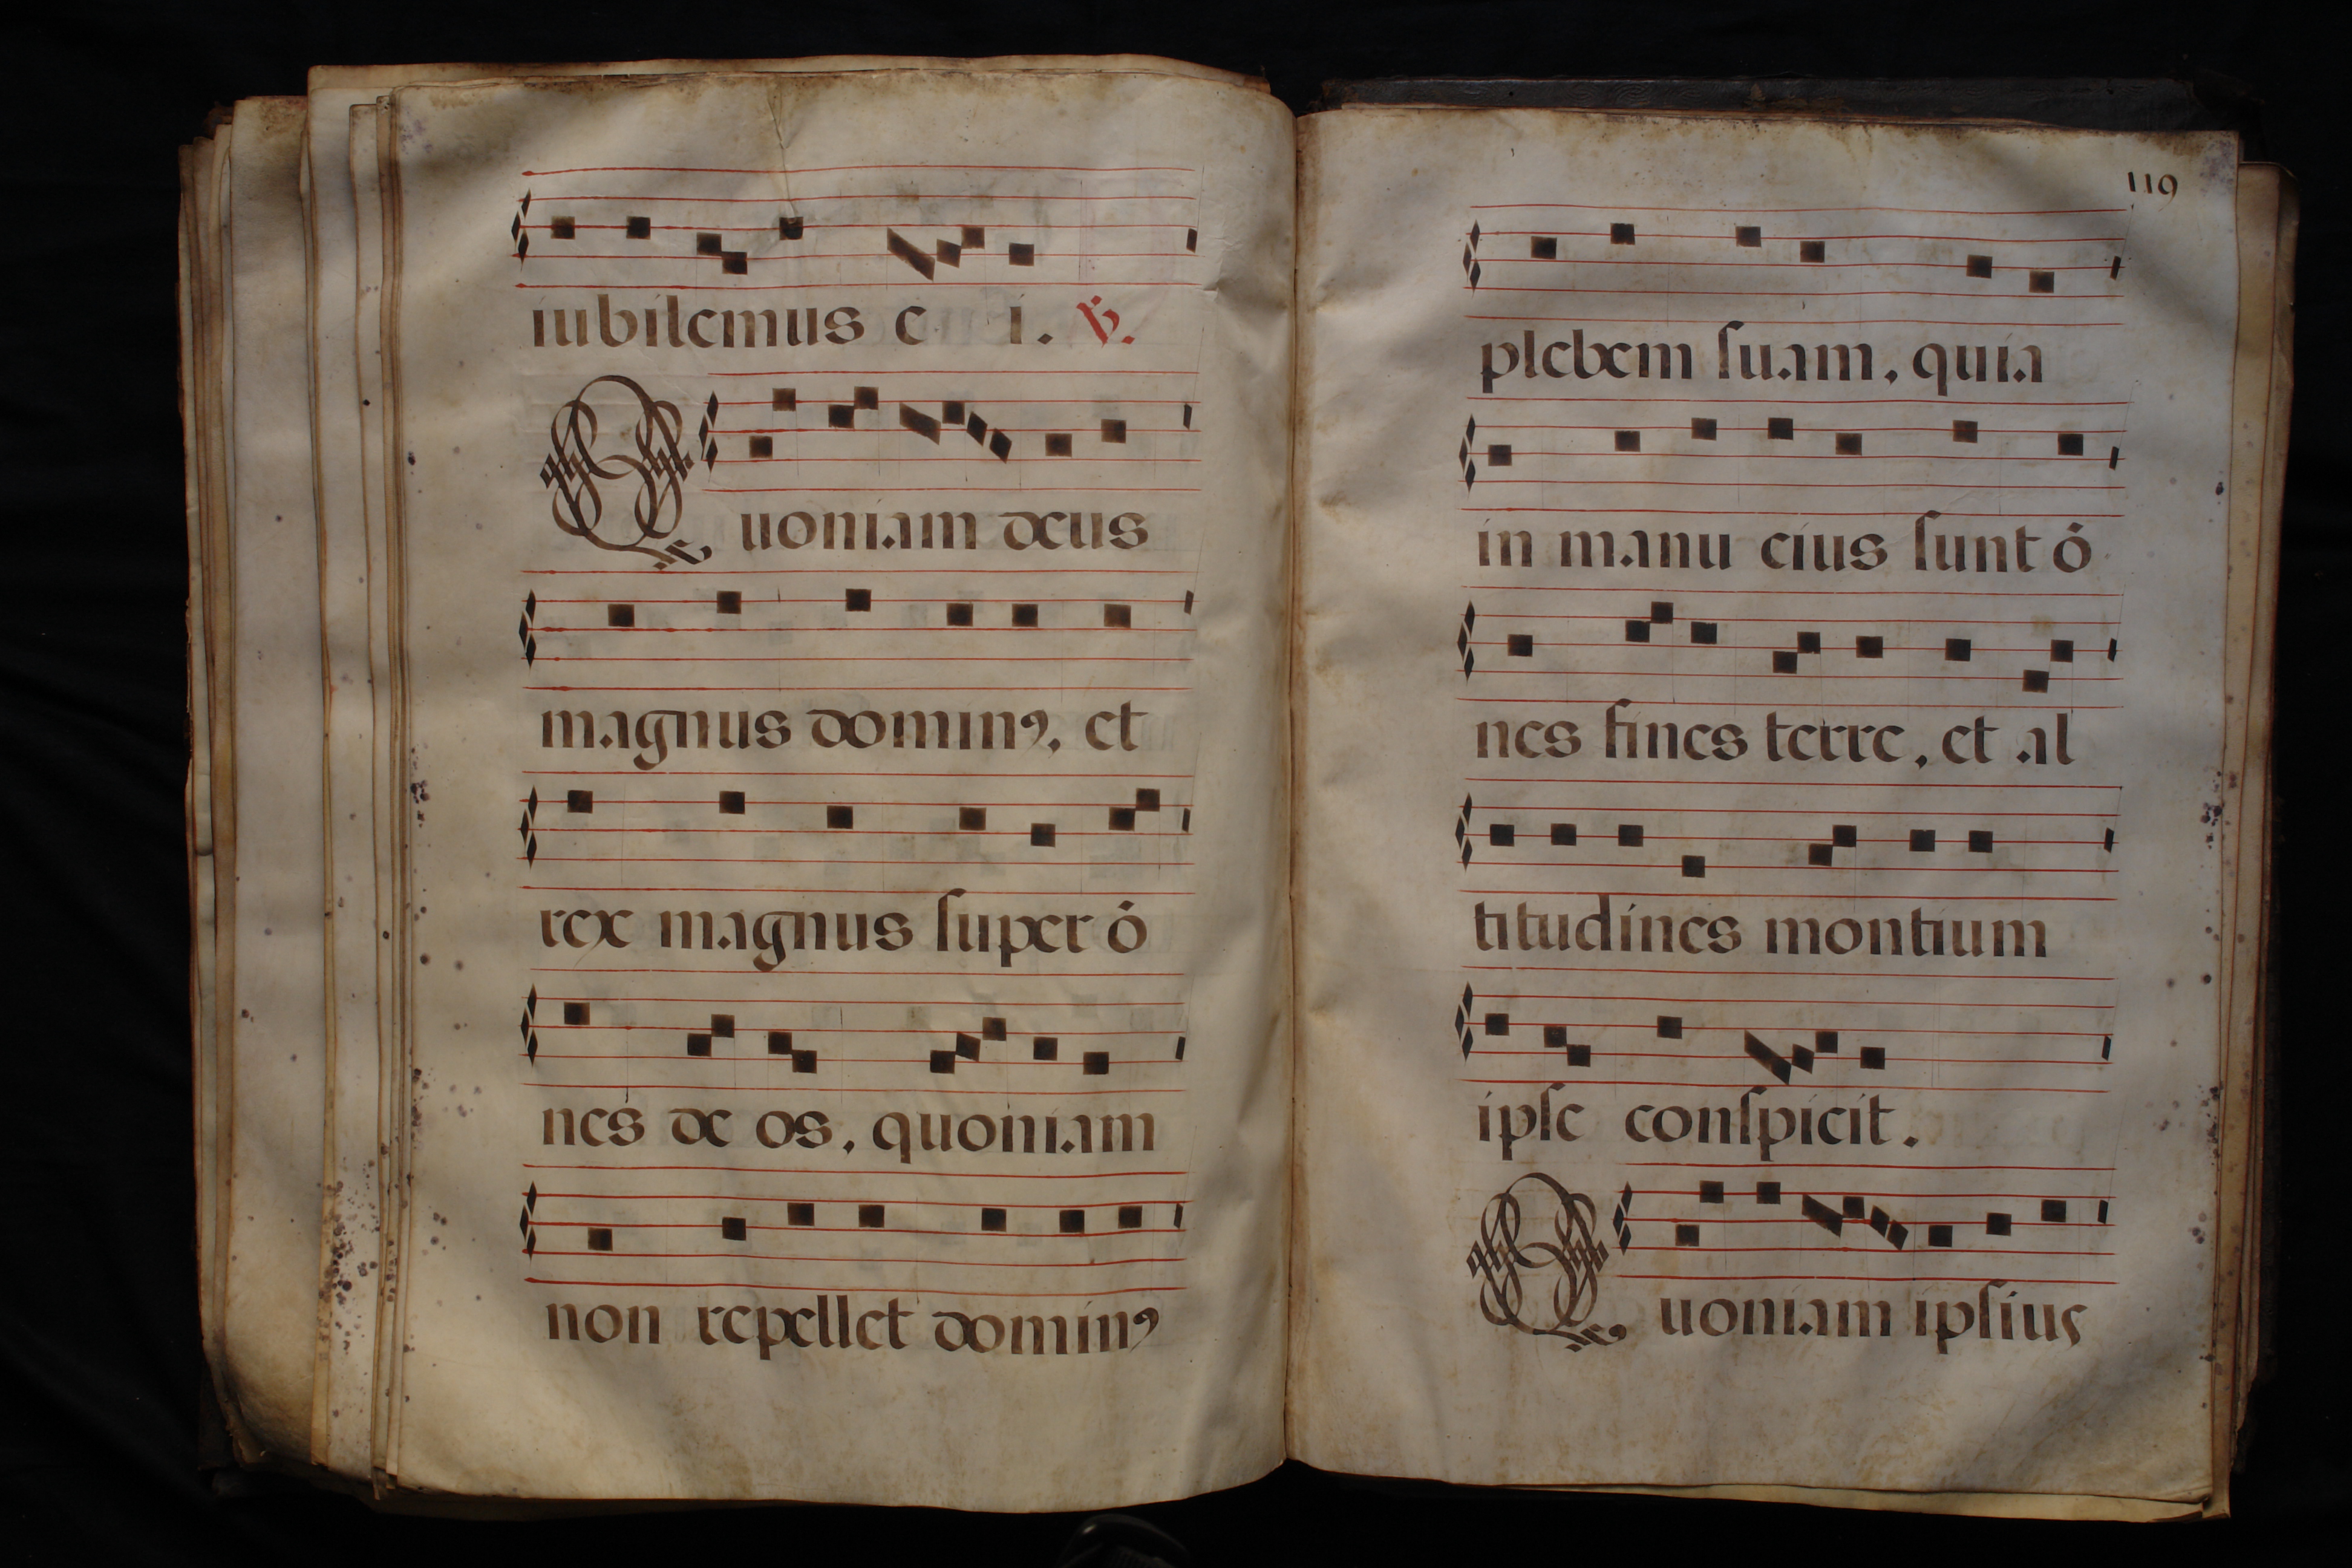 iubilemus e i. ℣.
Quoniam deus
magnus dominꝰ, et
rex magnus ſuper ō
nes de os, quoniam
non repellet dominꝰ
119
plebem ſuam, quia
in manu eius ſunt ō
nes fines terre, et al
titudines montium
ipſe conſpicit.
Quoniam ipſius